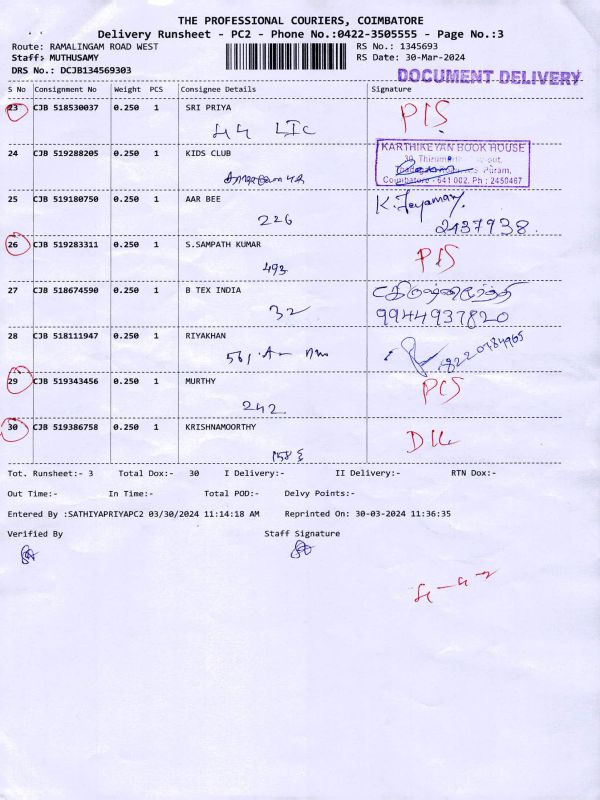 THE PROFESSIONAL COURIERS, COIMBATORE
Delivery Runsheet - PC2 - Phone No.:0422-3505555 - Page No.:3
Route: RAMALINGAM ROAD WEST
RS No.: 1345693
Staff: MUTHUSAMY
RS Date: 30-Mar-2024
DRS No.: DCJB134569303
DOCUMENT DELIVERY
S No Consignment No Weight PCS Consignee Details Signature
23 CJB 518530037 0.250 1 SRI PRIYA
44 LIC
24 CJB 519288205 0.250 1 KIDS CLUB
KARTHIKEYAN BOOK HOUSE
Coimbatore - 641 002. Ph : 2450467
25 CJB 519180750 0.250 1 AAR BEE
K. Jayamary
226
2437938.
26 CJB 519283311 0.250 1 S.SAMPATH KUMAR
493
27 CJB 518674590 0.250 1 B TEX INDIA
32
9944937820
28 CJB 518111947 0.250 1 RIYAKHAN
561
29 CJB 519343456 0.250 1 MURTHY
242
30 CJB 519386758 0.250 1 KRISHNAMOORTHY
DIL
Tot. Runsheet:- 3 Total Dox:- 30 I Delivery:- II Delivery:- RTN Dox:-
Out Time:- In Time:- Total POD:- Delvy Points:-
Entered By :SATHIYAPRIYAPC2 03/30/2024 11:14:18 AM Reprinted On: 30-03-2024 11:36:35
Verified By Staff Signature